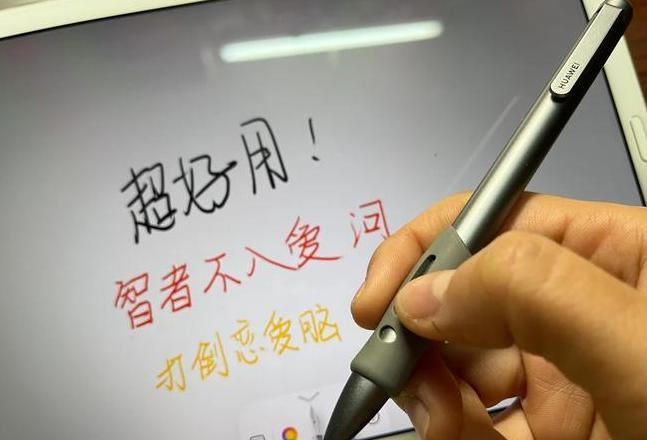 超好用！
智者不入爱问
打倒恋爱脑
HUAWEI